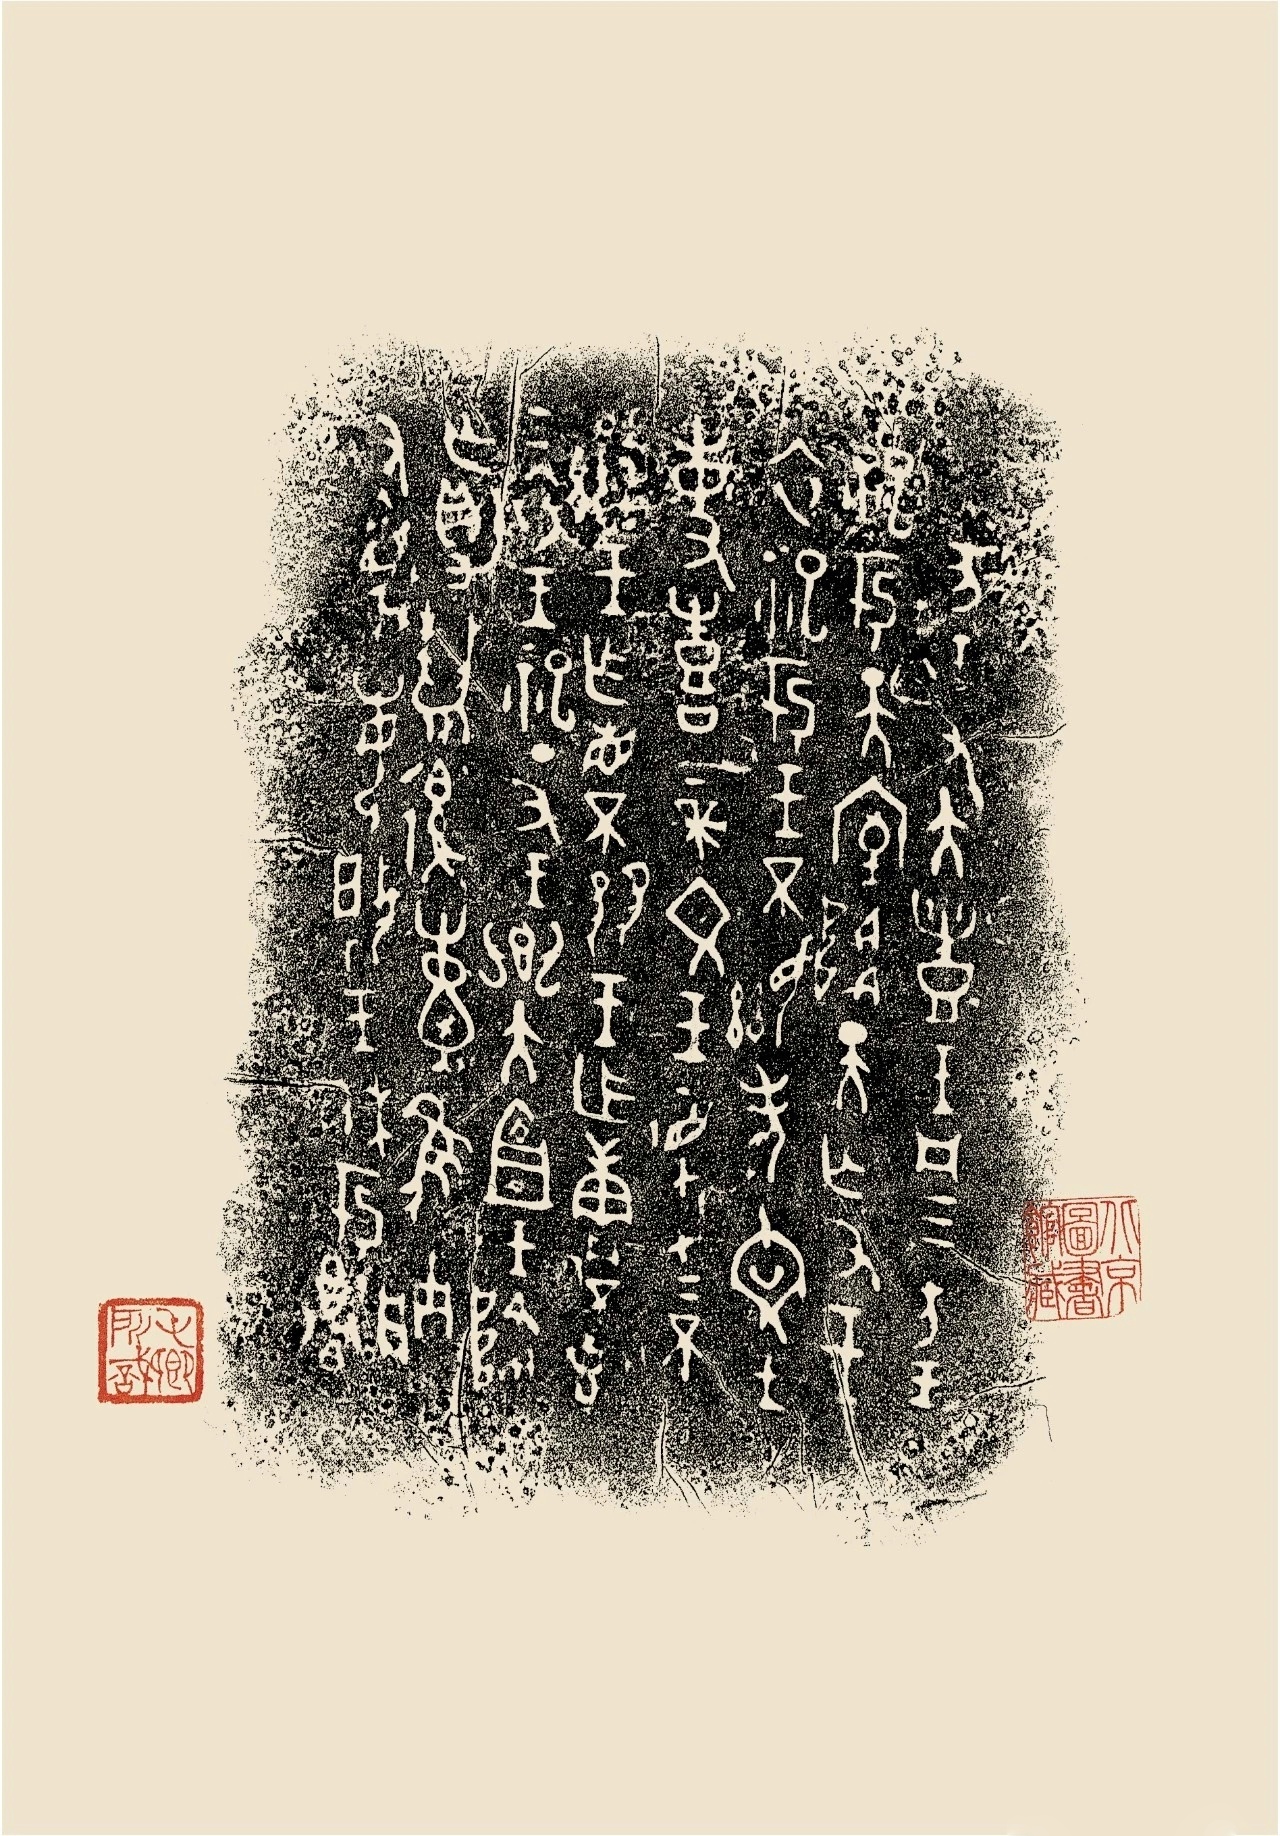 亥王又大豊王凡三方王
祀于天室降天亡又王
衣祀于王不顯考文王
事喜上帝文王監才上不
顯王乍省不王乍庸不克
三衣王祀丁丑王鄉大宜王降
亡爵隹朕
又蔑每揚王休于尊
北京圖書館藏